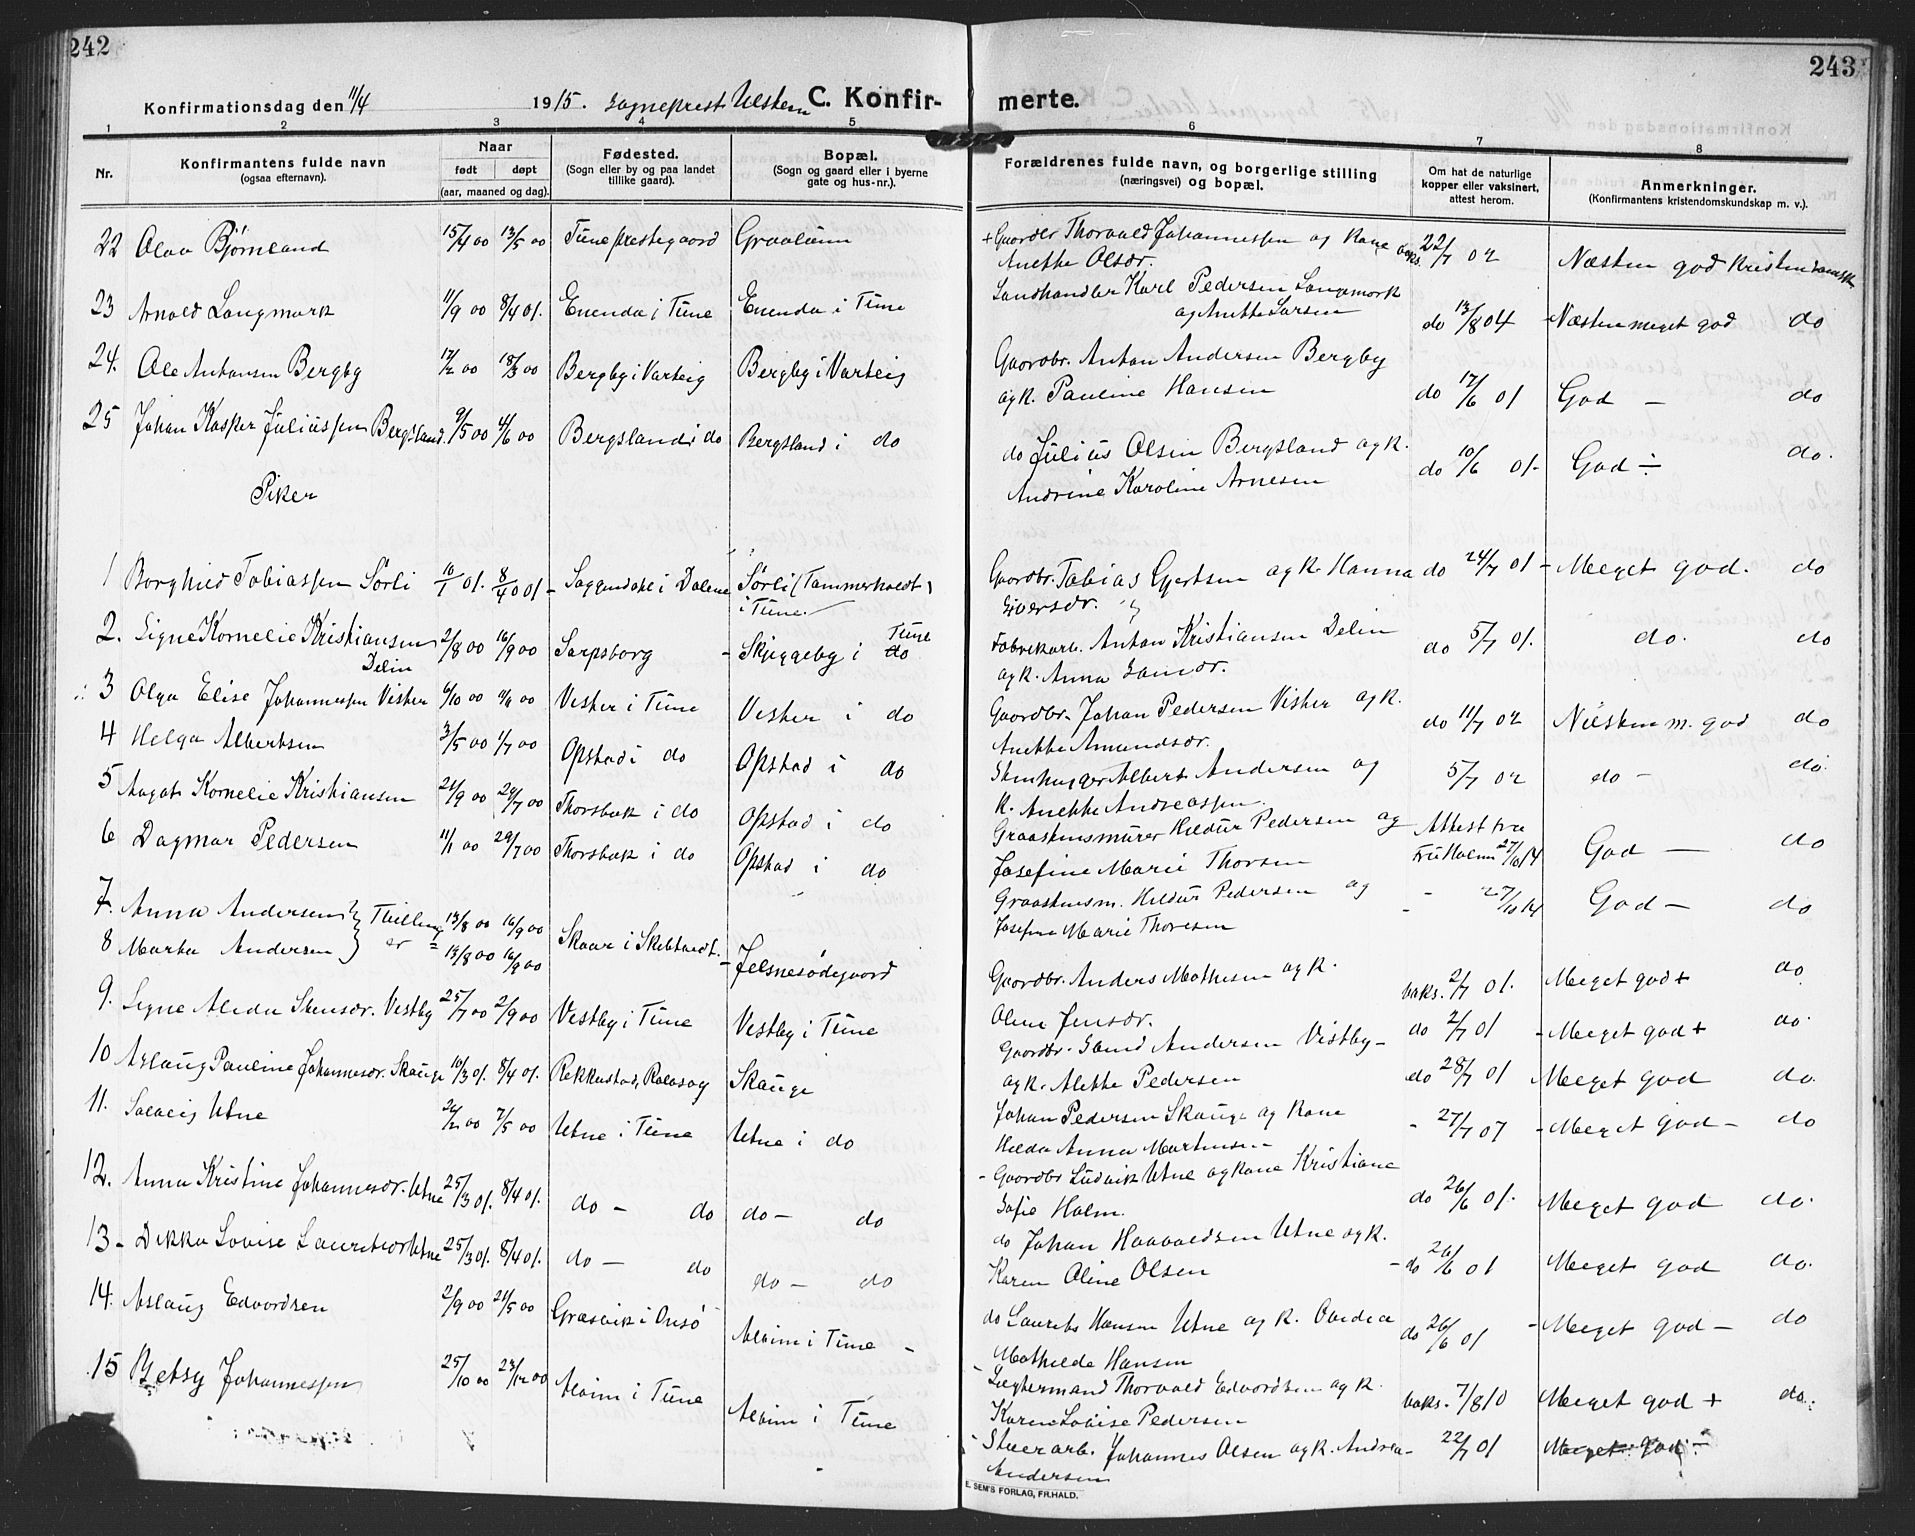 242
Konfirmationsdag den 11/4 1915. Sogneprest Ulstein C. Konfir-
1 2 3 4 5
Nr.
Konfirmantens fulde navn
(ogsaa efternavn).
Naar
født døpt
(aar, maaned og dag).
Fødested.
(Sogn eller by og paa landet
tillike gaard).
Bopæl.
(Sogn og gaard eller i byerne
gate og hus-nr.).
22 Olav Bjørnland 15/4 00 13/5 00 Tune prestegaard Graalum
23 Arnold Langmark 11/9 00 8/4 01. Enenda i Tune Enenda i Tune
24. Ole Antonsen Bergby 17/2 00 18/3 00 Bergby i Varteig Bergby i Varteig
25 Johan Kasper Juliussen Bergsland. 9/5 00 4/6 00 Bergsland i do Bergsland i do
Piker
1 Borghild Tobiassen Sørli 10/1 01. 8/4 01 - Soggendal i Dalene Sørli (Tammerholdt)
i Tune.
2. Signe Kornelie Kristiansen 2/8 00 16/9 00 Sarpsborg - Skjeggeby i do Tune
Delin
3 Olga Elise Johannessen Vister 6/10 00 Vister i Tune Vister i do
4 Helga Albertsen 3/5 00 1/7 00 Opstad i do Opstad i do
5 Aagot Kornelie Kristiansen 21/9 00 29/7 00 Thorsbæk i do Opstad i do
6 Dagmar Pedersen 11/1 00 29/7 00 Thorsbæk i do Opstad i do
7. Anna Andersen } Tvilling 13/8 00 16/9 00
8 Marta Andersen } er = 13/8 00 16/9 00 Skaar i Skibtvedt. - Jelsnesødegaard
9. Signe Alida Stensdr. Vestby 25/7 00 2/9 00 Vestby i Tune Vestby i Tune
10 Aslaug Pauline Johannesdr. Skauge 10/3 01. 8/4 01. Rekkustad, Rolvsøy Skauge
11. Solveig Utne 24/2 00 7/5 00 Utne i Tune Utne i do
12. Anna Kristine Johannesdr. Utne 25/3 01. 8/4 01. do - do do - do
13 - Dikka Lovise Lauritsdr Utne 25/3 01. 8/4 01. do - do do - do
14. Aslaug Edvardsen 2/9 00 21/5 00 Græsvik i Onsø Alvim i Tune -
15 Betsy Johannessen 25/10 00 23/12 00 Alvim i Tune Alvim i Tune
243
merte.
6 7 8
Forældrenes fulde navn, og borgerlige stilling
(næringsvei) og bopæl.
Om hat de naturlige
kopper eller vaksinert,
attest herom.
Anmerkninger.
(Konfirmantens kristendomskundskap m. v.).
+ Gaardbr Thorvald Johannessen og Kone vaks. 22/7 02 Næsten god kristendomsk
Anette Olsdr.
Landhandler Karl Pedersen Langmark
og Anette Larsen do 13/8 04 - Næsten meget god do
Gaardbr. Anton Andersen Bergby
og k. Pauline Hansen do 17/6 01 God - do
do Julius Olsen Bergsland og k.
Andrine Karoline Arnesen do 10/6 01 - God ÷ do.
Gaardbr. Tobias Gjertsen og k. Hanna do 24/7 01 - Meget god. do
Siversdr.
Fabrikarb. Anton Kristiansen Delin do 5/7 01. do. do
og k. Anna
Gaardbr. Johan Pedersen Vister og k. do 11/7 02 Næsten m. god do
Anette Amundsdr.
Stenhugger Albert Andersen og 5/7 02 do - do.
k. Anette Andreassen.
Graastensmurer Hildur Pedersen og Attest fra
Josefine Marie Thorsen Fru Holm 27/10 14 God - do
Graastensm. Hildur Pedersen og - 27/10 14 God - do
Josefine Marie Thoresen
Gaardbr. Anders Mathisen og k. vaks. 2/7 01. Meget god + do
Oline Jensdr. do 2/7 01 - Meget god + do.
Gaardbr. Andersen Vistby -
og k. Alette Pedersen do 28/7 01 Meget god do.
Johan Pedersen Skauge og Kone - 27/7 07 - Meget god - do
Hilda Anna Martinsen
- Gaardbr Ludvik Utne og Kone Kristiane
Sofie Holm. do 26/6 01. Meget god do.
do Johan Haavaldsen Utne og k.
Karen Oline Olsen - do 26/6 01 Meget god do.
do Laurits Hansen Utne og k. Ovedia do 26/6 01 - Meget god - do
Mathilde Hansen
- Lægtermand Thorvald Edvardsen og k. vaks. 7/8 10 Meget god + do.
Karen Lovise Pedersen
Stuerarb. Johannes Olsen og k. Andrea - 22/7 01 Meget god ÷
Andersen
E. SEM'S FORLAG, FR.HALD.